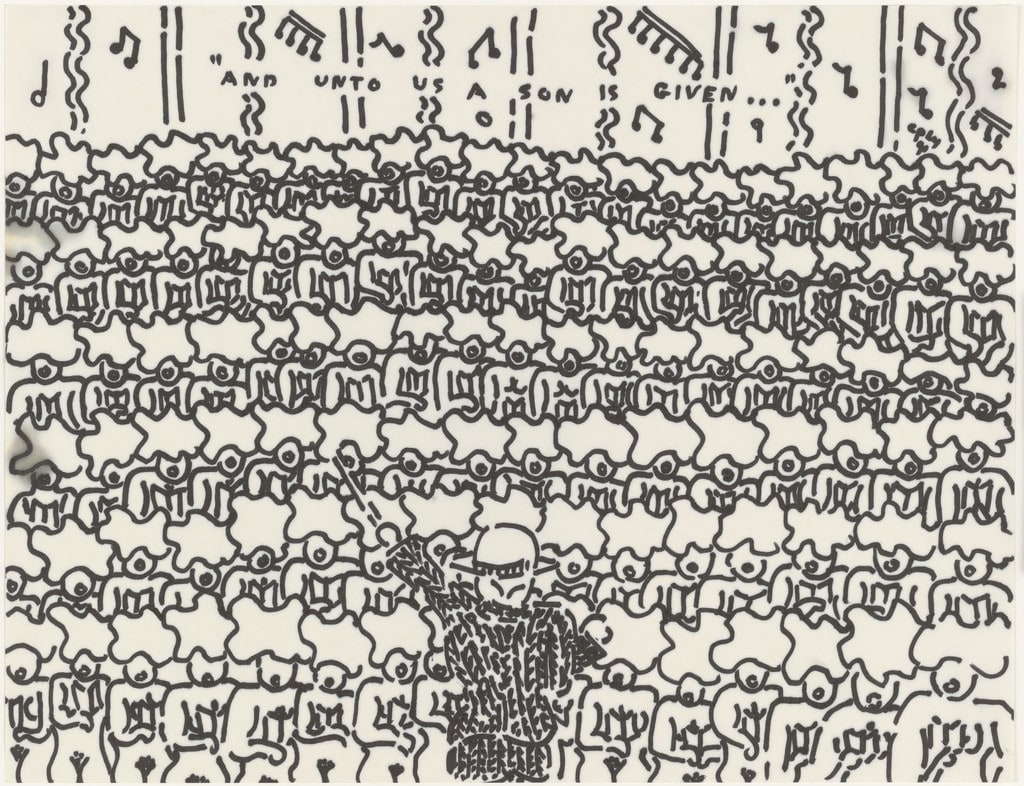 "AND UNTO US A SON IS GIVEN..."